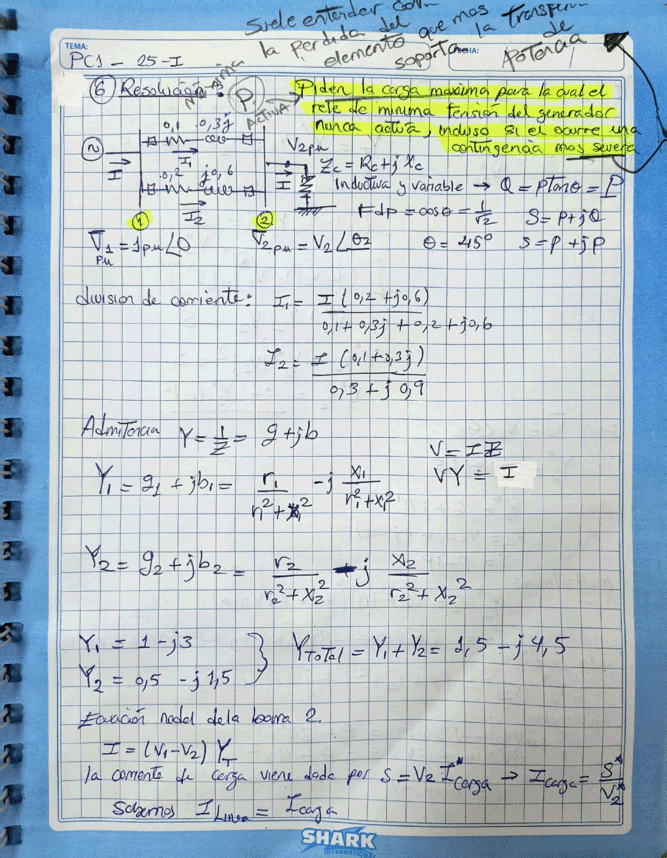 Suele entender como
la perdida del
elemento que mas
soporta la transferencia de
potencia
TEMA:
PC1 - 25 - I
FECHA:
6 Resolución:
maxima
P
ACTIVA
Piden la carga maxima para la cual el
rele de minima tension del generador
nunca activa, incluso si el ocurre una
contingencia mas severa
0,1 0,3j
I I1
0,2 j0,6
I2
1 2
V2pu
I
Zc = Rc + j Xc
inductiva y variable → Q = P tanθ = P
Fdp = cosθ = 1/√2 S = P + jQ
V1 pu = 1pu∠0 V2pu = V2∠θ2 θ = 45° S = P + jP
división de corriente: I1 = I (0,2 + j0,6) / 0,1 + 0,3j + 0,2 + j0,6
I2 = I (0,1 + 0,3j) / 0,3 + j 0,9
Admitancia Y = 1/Z = g + jb
V = IZ
VY = I
Y1 = g1 + jb1 = r1/r1² + x1² - j x1/r1² + x1²
Y2 = g2 + jb2 = r2/r2² + x2² - j x2/r2² + x2²
Y1 = 1 - j3
Y2 = 0,5 - j1,5
YTOTAL = Y1 + Y2 = 1,5 - j 4,5
Ecuación nodal de la barra 2.
I = (V1 - V2) YT
la corriente de carga viene dada por S = V2 I*carga → Icarga = S*/V2*
Sabemos I Linea = I carga
SHARK
INTERNATIONAL